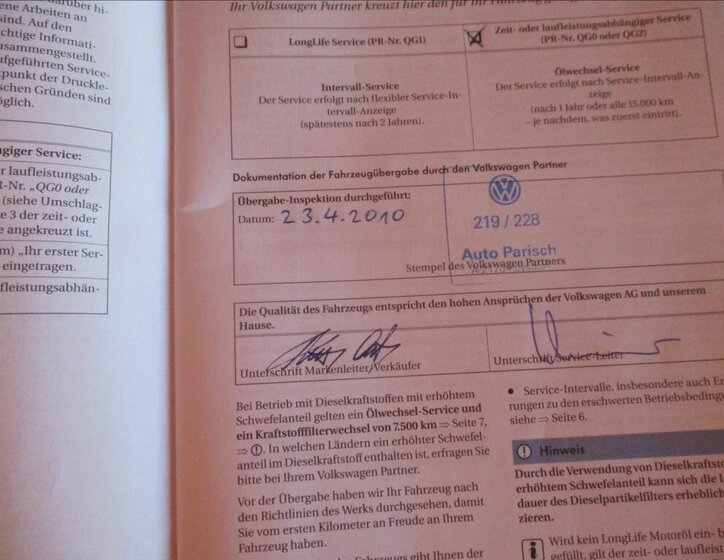 darüber hi-
ene Arbeiten an
sind. Auf den
chtige Informati-
usammengestellt.
ufgeführten Service-
tpunkt der Druckle-
schen Gründen sind
öglich.
giger Service:
r laufleistungsab-
R-Nr. „QG0 oder
(siehe Umschlag-
e 3 der zeit- oder
angekreuzt ist.
m) „Ihr erster Ser-
eingetragen.
ufleistungsabhän-
Ihr Volkswagen Partner kreuzt hier den für Ihr
LongLife Service (PR-Nr. QG1)
Intervall-Service
Der Service erfolgt nach flexibler Service-In-
tervall-Anzeige
(spätestens nach 2 Jahren).
Zeit- oder laufleistungsabhängiger Service
(PR-Nr. QG0 oder QG2)
Ölwechsel-Service
Der Service erfolgt nach Service-Intervall-An-
zeige
(nach 1 Jahr oder alle 15.000 km
– je nachdem, was zuerst eintritt).
Dokumentation der Fahrzeugübergabe durch den Volkswagen Partner
Übergabe-Inspektion durchgeführt:
Datum: 23.4.2010
219 / 228
Auto Parisch
Stempel des Volkswagen Partners
Die Qualität des Fahrzeugs entspricht den hohen Ansprüchen der Volkswagen AG und unserem
Hause.
Unterschrift Markenleiter/Verkäufer
Unterschrift Service-Leiter
Bei Betrieb mit Dieselkraftstoffen mit erhöhtem
Schwefelanteil gelten ein Ölwechsel-Service und
ein Kraftstofffilterwechsel von 7.500 km ⇒ Seite 7,
⇒ ①. In welchen Ländern ein erhöhter Schwefel-
anteil im Dieselkraftstoff enthalten ist, erfragen Sie
bitte bei Ihrem Volkswagen Partner.
Vor der Übergabe haben wir Ihr Fahrzeug nach
den Richtlinien des Werks durchgesehen, damit
Sie vom ersten Kilometer an Freude an Ihrem
Fahrzeug haben.
Fahrzeugs gibt Ihnen der
• Service-Intervalle, insbesondere auch Er
rungen zu den erschwerten Betriebsbeding
siehe ⇒ Seite 6.
Hinweis
Durch die Verwendung von Dieselkraftsto
erhöhtem Schwefelanteil kann sich die L
dauer des Dieselpartikelfilters erheblich
zieren.
Wird kein LongLife Motoröl ein- b
gefüllt, gilt der zeit- oder laufleis